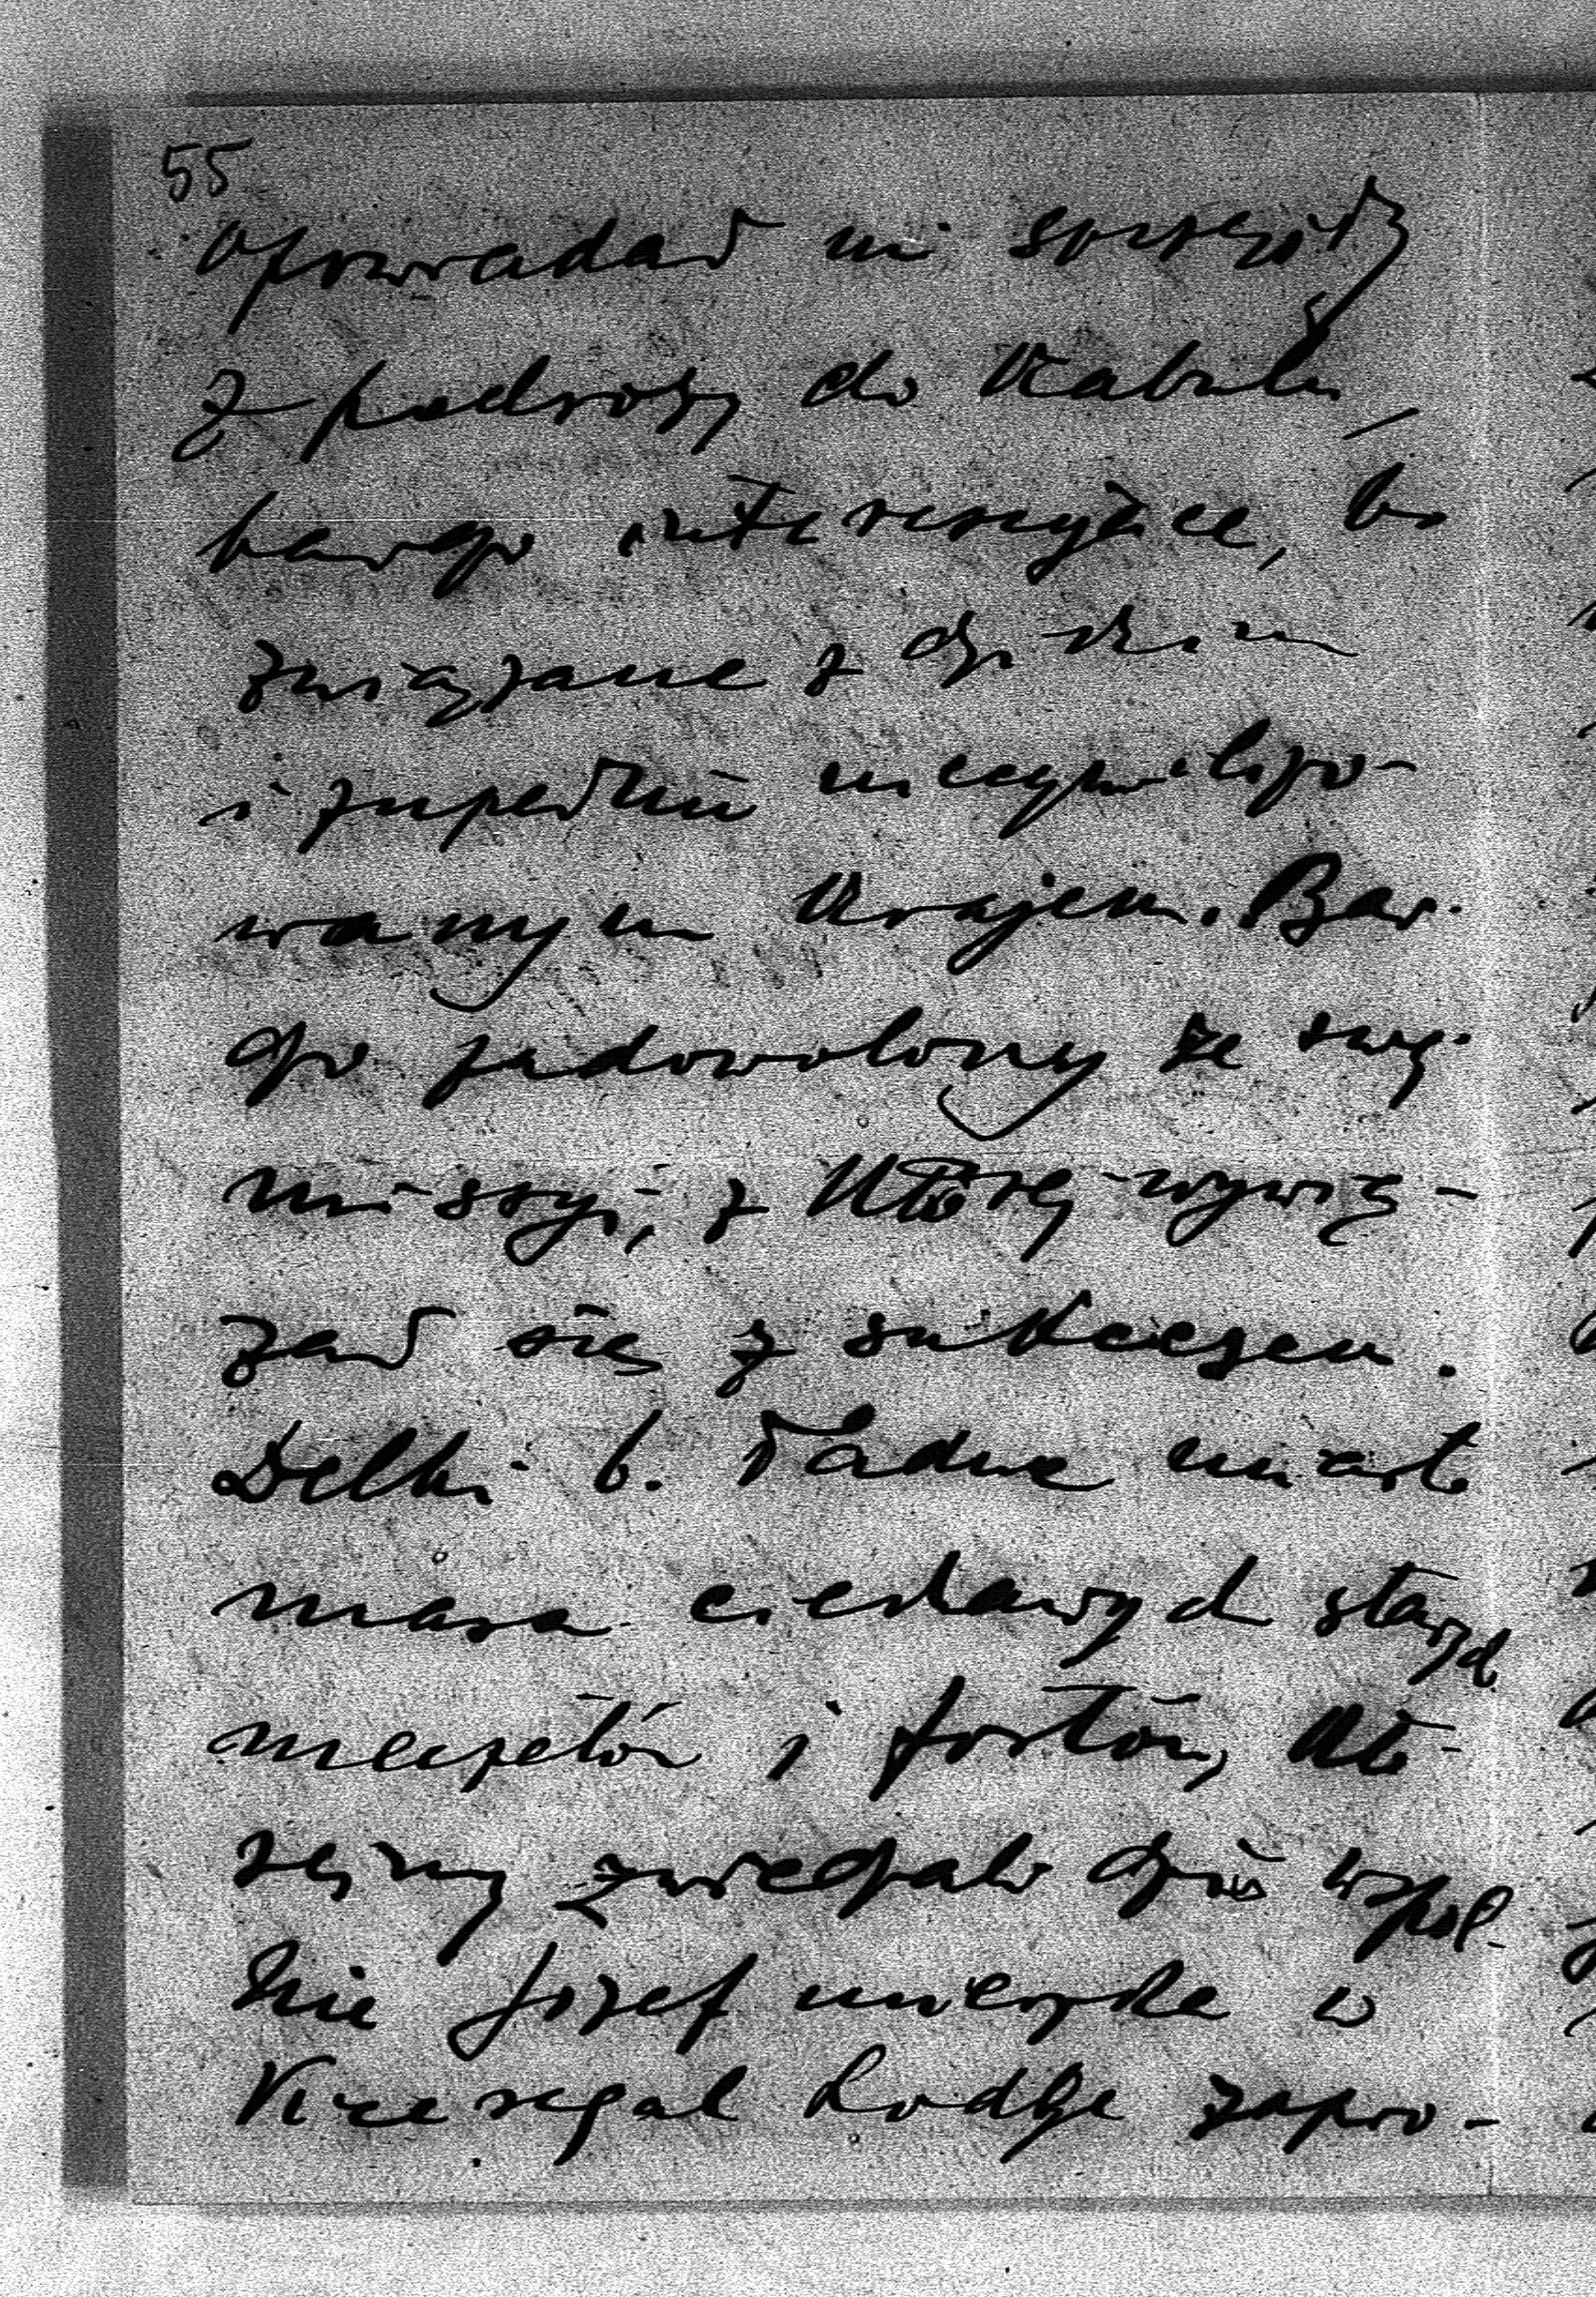 55
opowiadał mi szczegóły
z podróży do Kabulu,
bardzo interesujące, bo
związane z dzikim
i zupełnie niecywilizo-
wanym krajem. Bar-
dzo zadowolony ze swej
missyi, z której wywią-
zał się z sukcesem.
Delhi b. ładne miasto
masa ciekawych starych
meczetów i fortów, któ-
reśmy zwiedzali dziś wspól-
nie Józef mieszka w
Viceregal Lodge zapro-